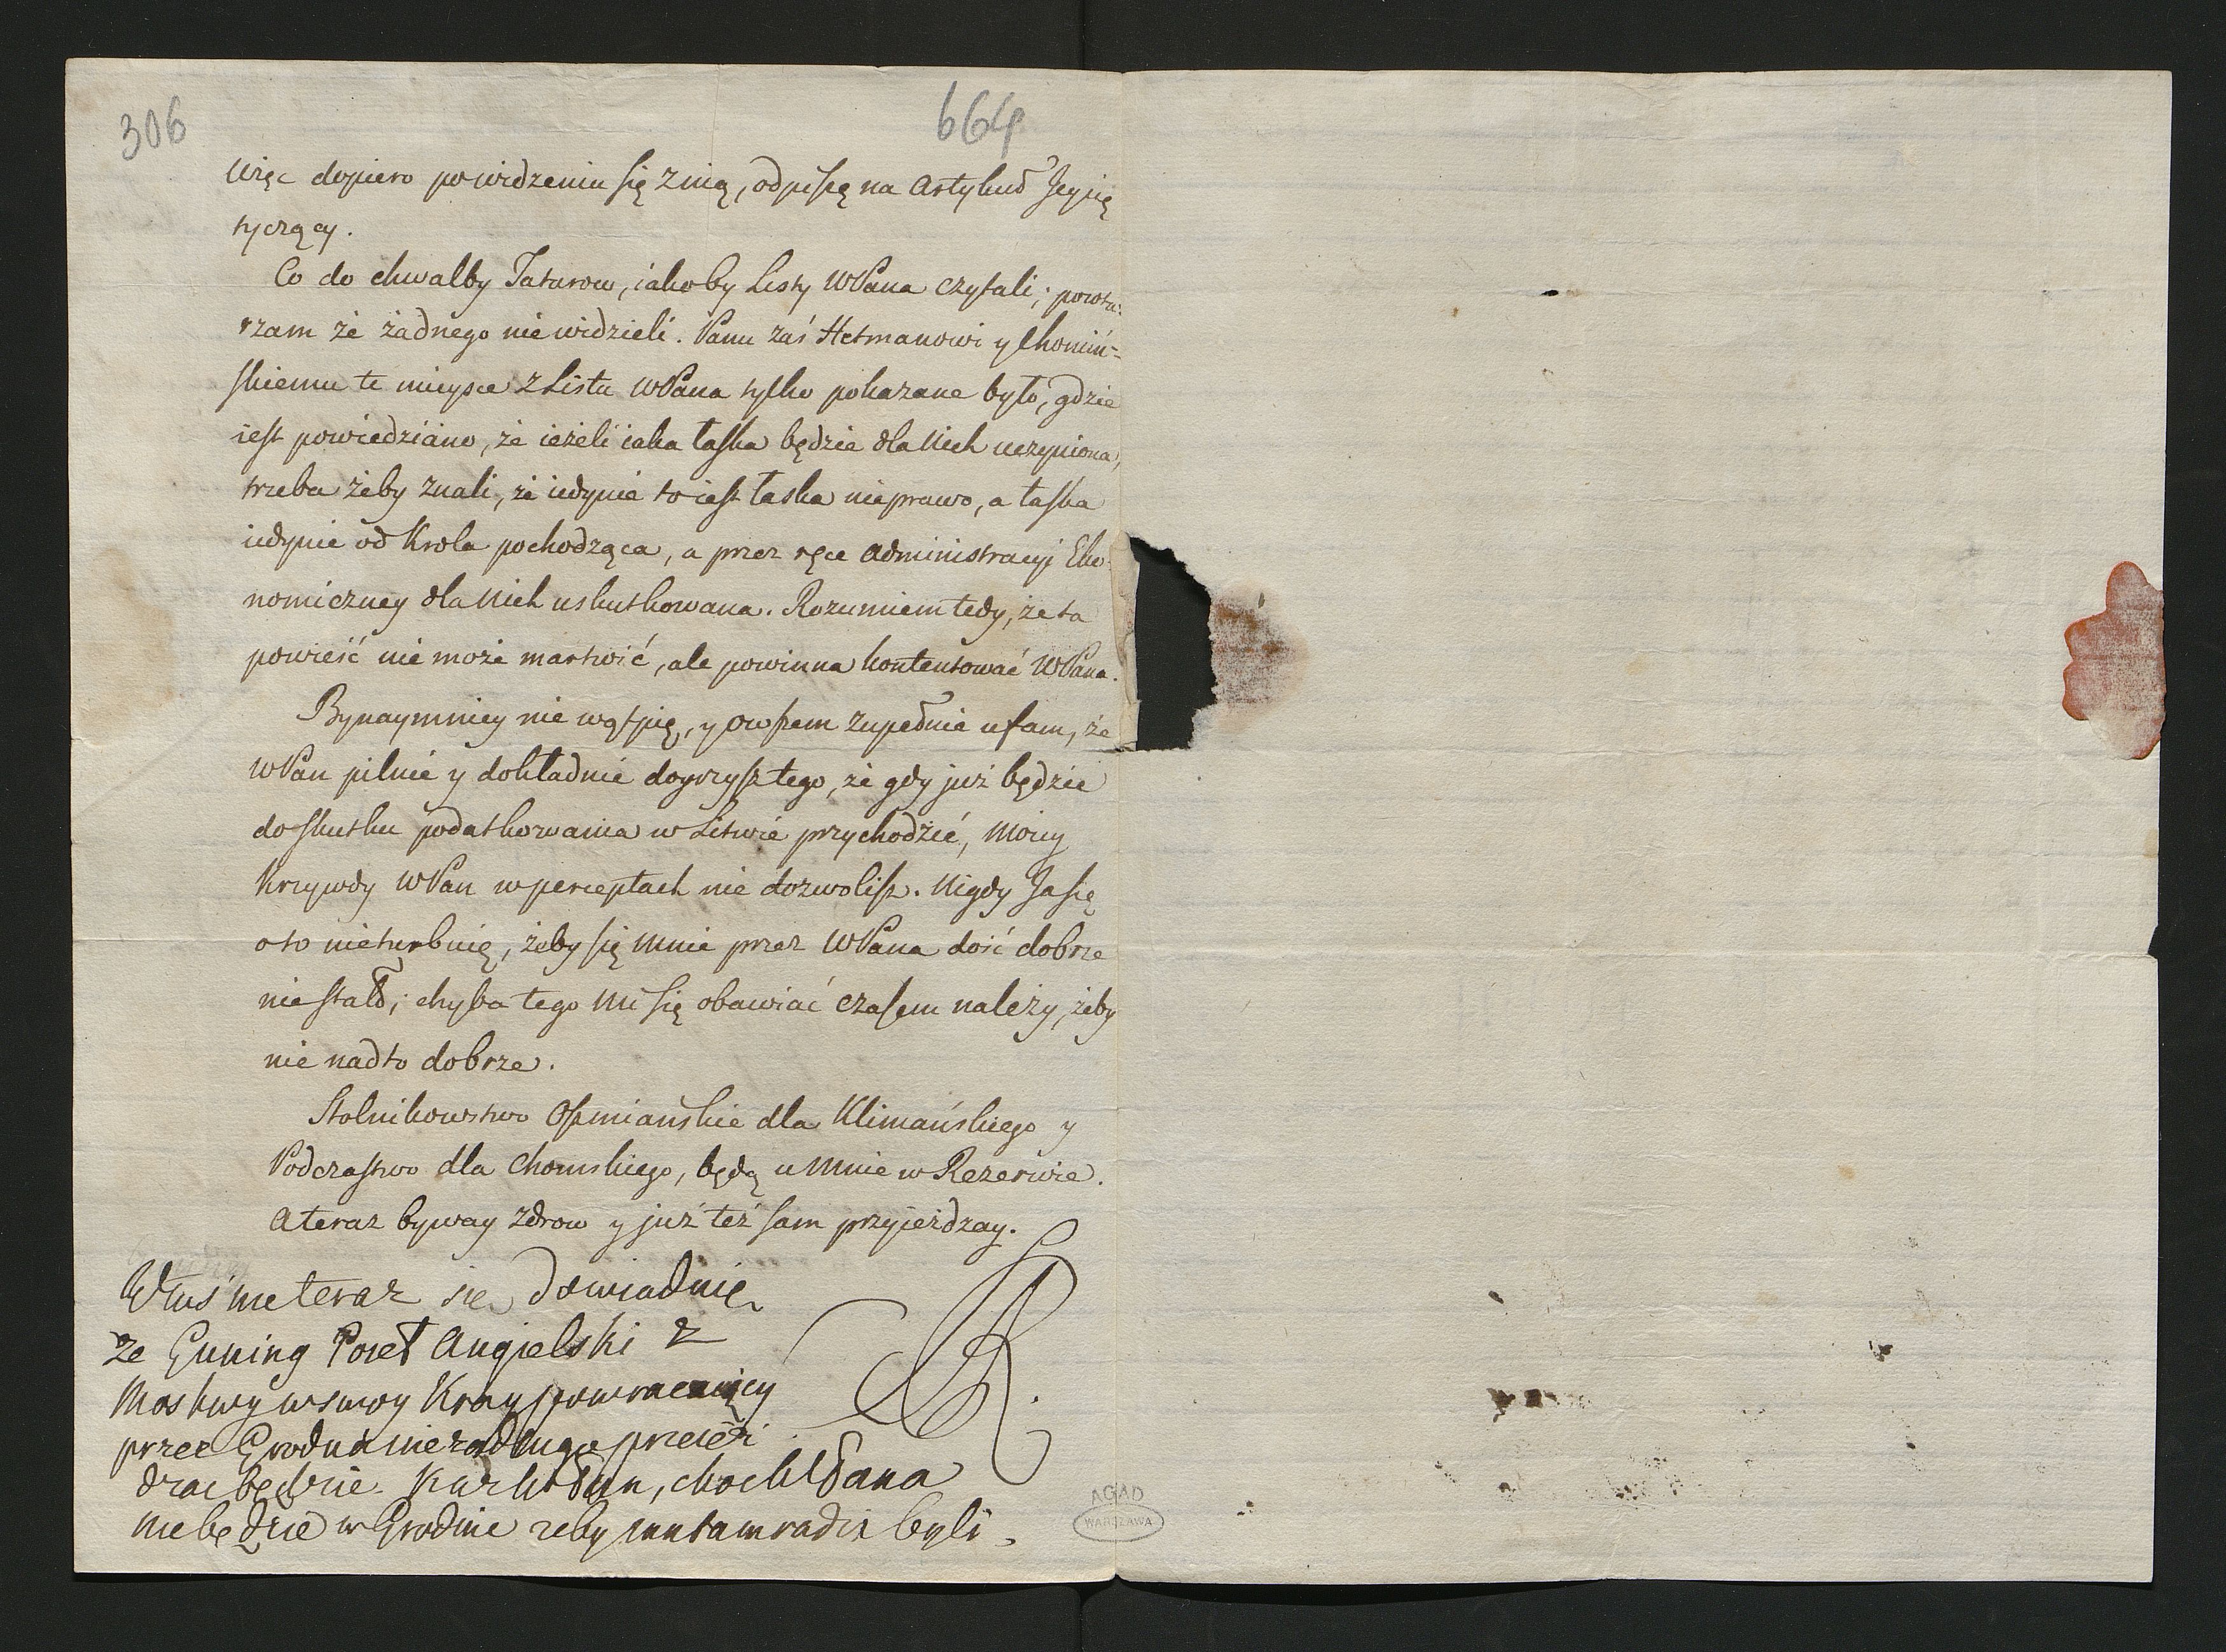 306
664
więc dopiero po widzeniu się z nią, odpiszę na Artykuł Jey się
tyczący.
Co do chwalby Tatarow, iakoby Listy WPana czytali; powta:
rzam że żadnego nie widzieli. Panu zaś Hetmanowi y Chomiń=
skiemu te mieysce z Listu WPana tylko pokazane było, gdzie
iest powiedziano, że ieżeli iaka łaska będzie dla Nich uczyniona,
trzeba żeby znali, że iedynie to iest łaska nie prawo, a łaska
iedynie od Krola pochodząca, a przez ręce Administracyi Eko=
nomiczney dla Nich uskutkowana. Rozumiem tedy, że ta
powieść nie może martwić, ale powinna kontentować WPana.
Bynaymniey nie wątpię, y owszem zupełnie ufam, że
WPan pilnie y dokładnie doyrzysz tego, że gdy już będzie
do skutku podatkowania w Litwie przychodzić, moiey
Krzywdy WPan w perceptach nie dozwolisz. Nigdy Ja się
o to nie turbuię, żeby się mnie przez WPana dość dobrze
nie stało; chyba tego mi się obawiać czasem należy, żeby
nie nadto dobrze.
Stolnikowstwo Oszmiańskie dla Klimańskiego y
Podczastwo dla Chomskiego, będą u mnie w Rezerwie.
A teraz byway zdrow y już też sam przyieżdzay.
SR.
teraz się dowiaduię
że Guning Poseł Angielski z
Moskwy w swoy Kray powracaiący
przez Grodno niezadługo przeież
dzac będzie. Każ WPan, choc WPana
nie będzie w Grodnie zeby mu tam radzi byli.
AGAD
WARSZAWA